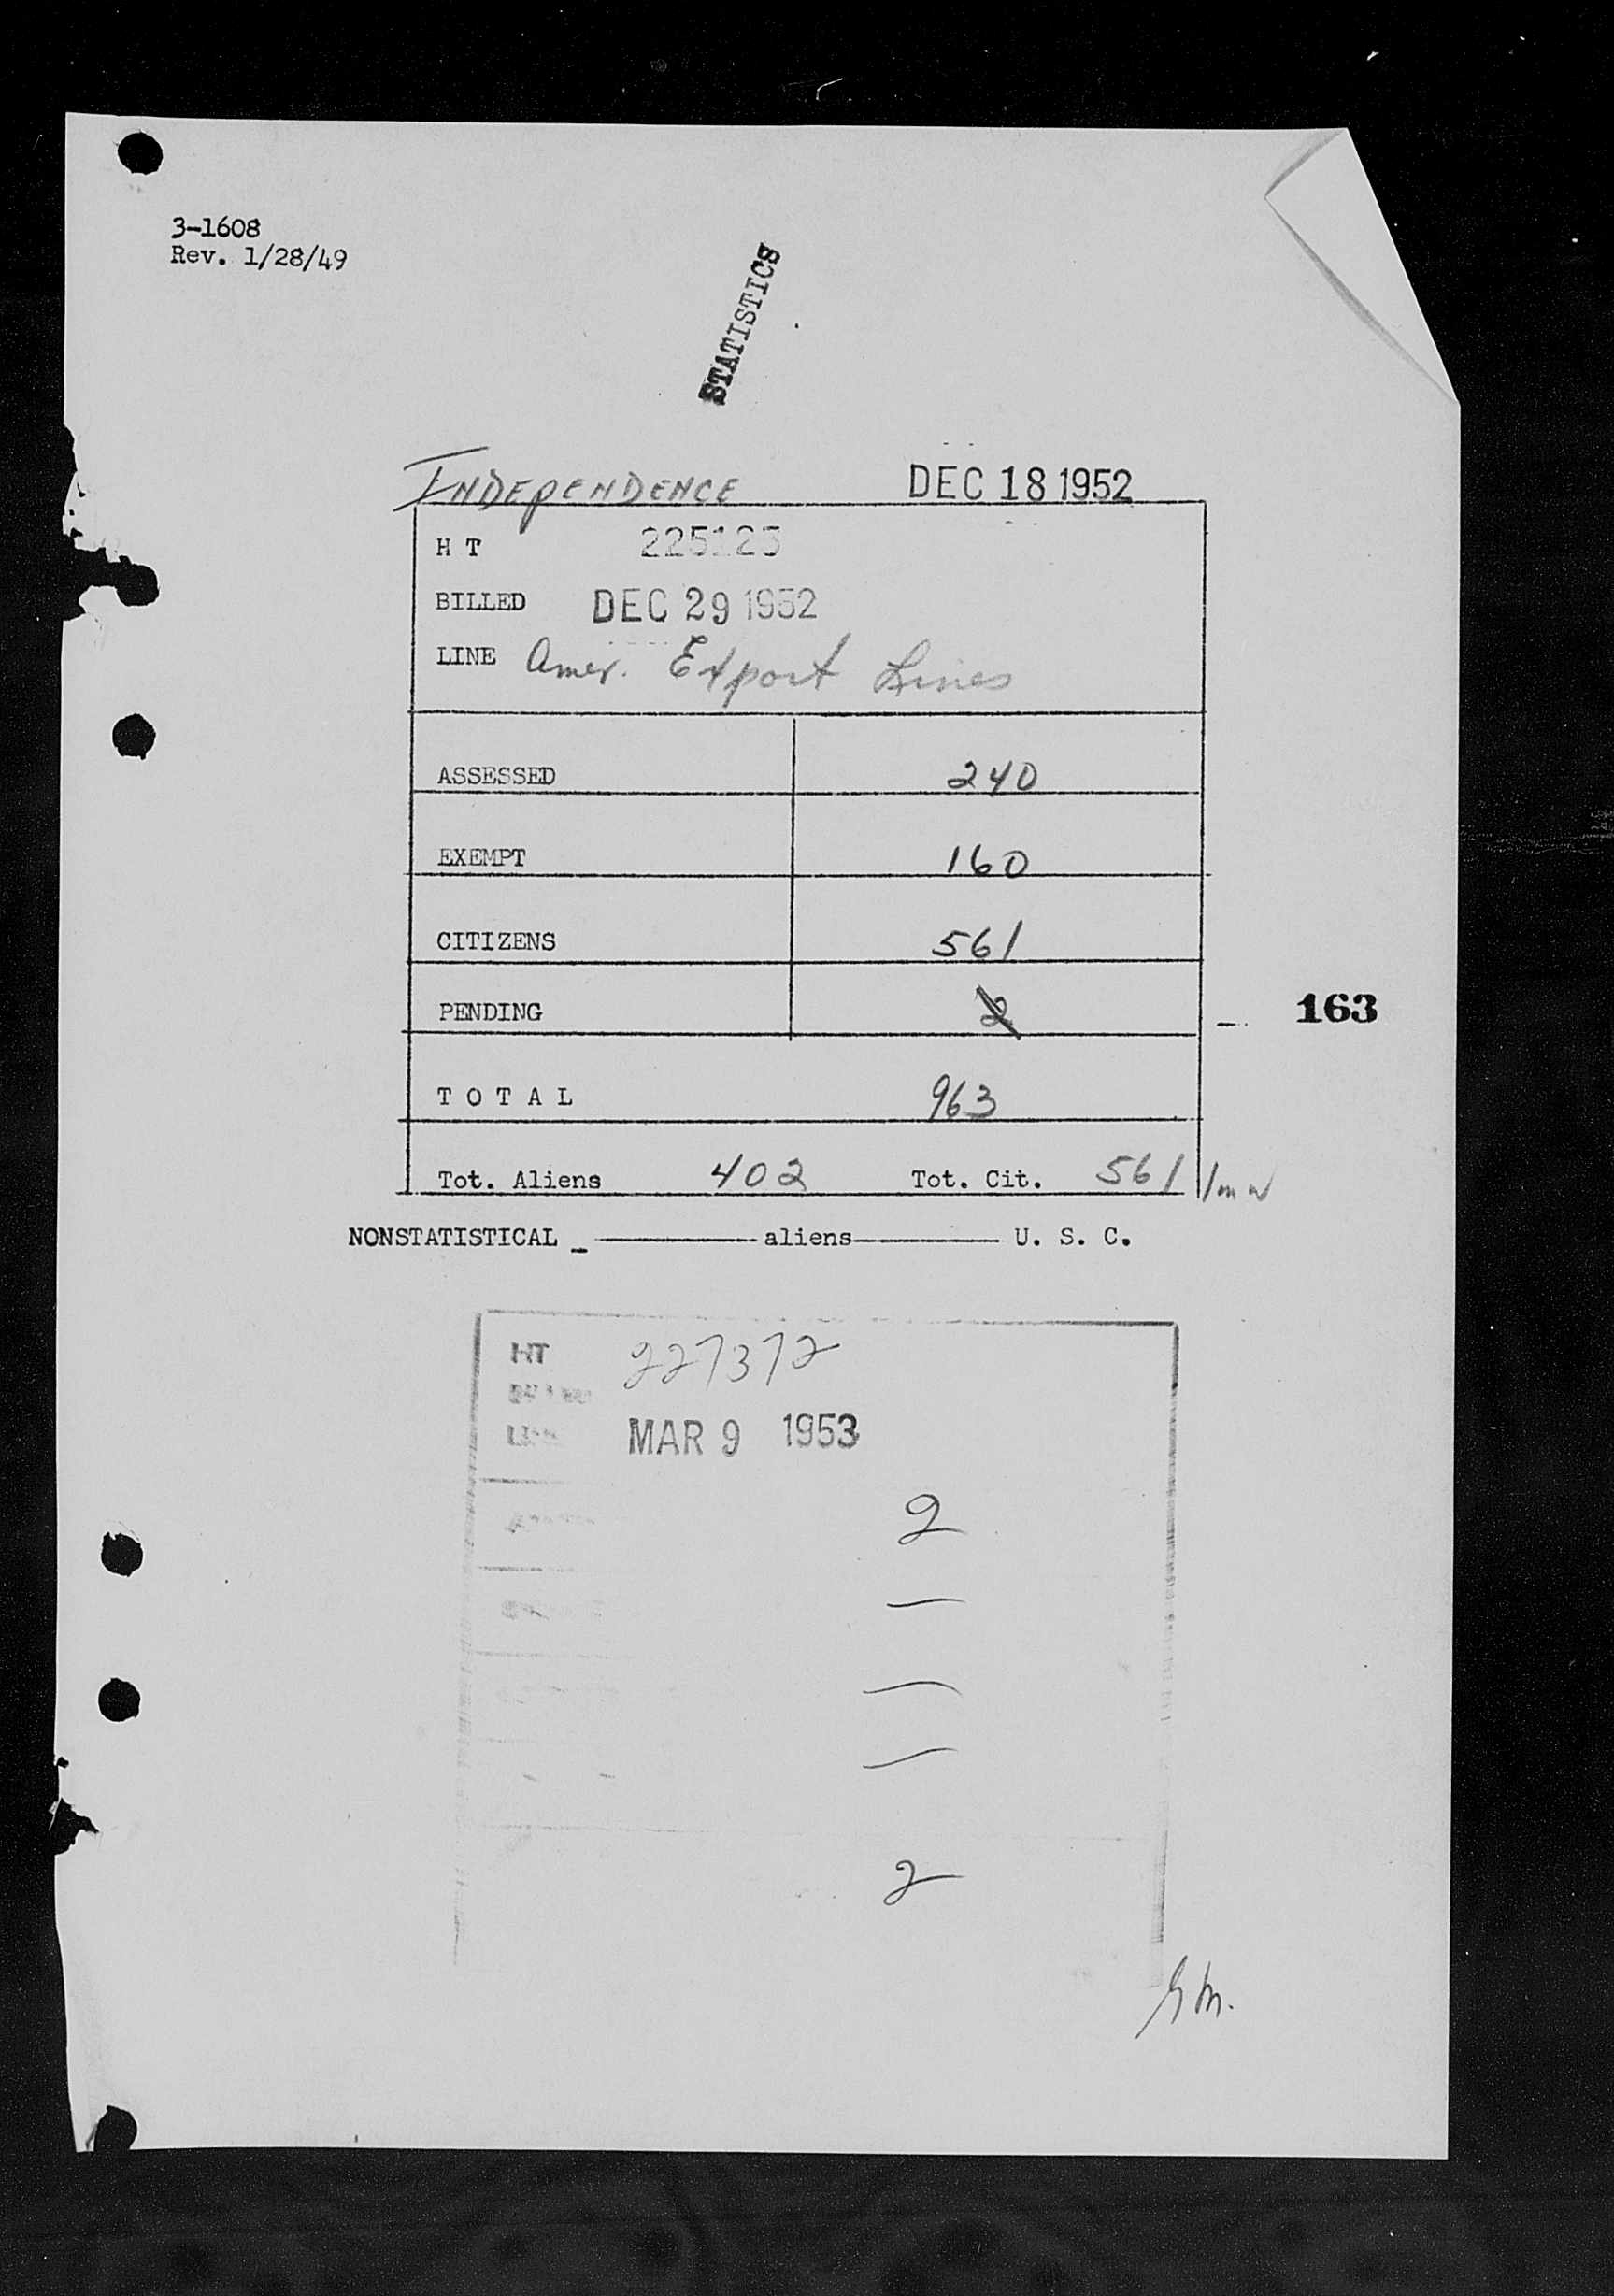 3-1608
Rev. 1/28/49
STATISTICS
INDEPENDENCE DEC 18 1952
H T 225125
BILLED DEC 29 1952
LINE Amer. Export Lines
ASSESSED 240
EXEMPT 160
CITIZENS 561
PENDING 2
163
T O T A L 963
Tot. Aliens 402 Tot. Cit. 561
NONSTATISTICAL _ aliens U. S. C.
HT 227372
MAR 9 1953
2
—
—
—
2